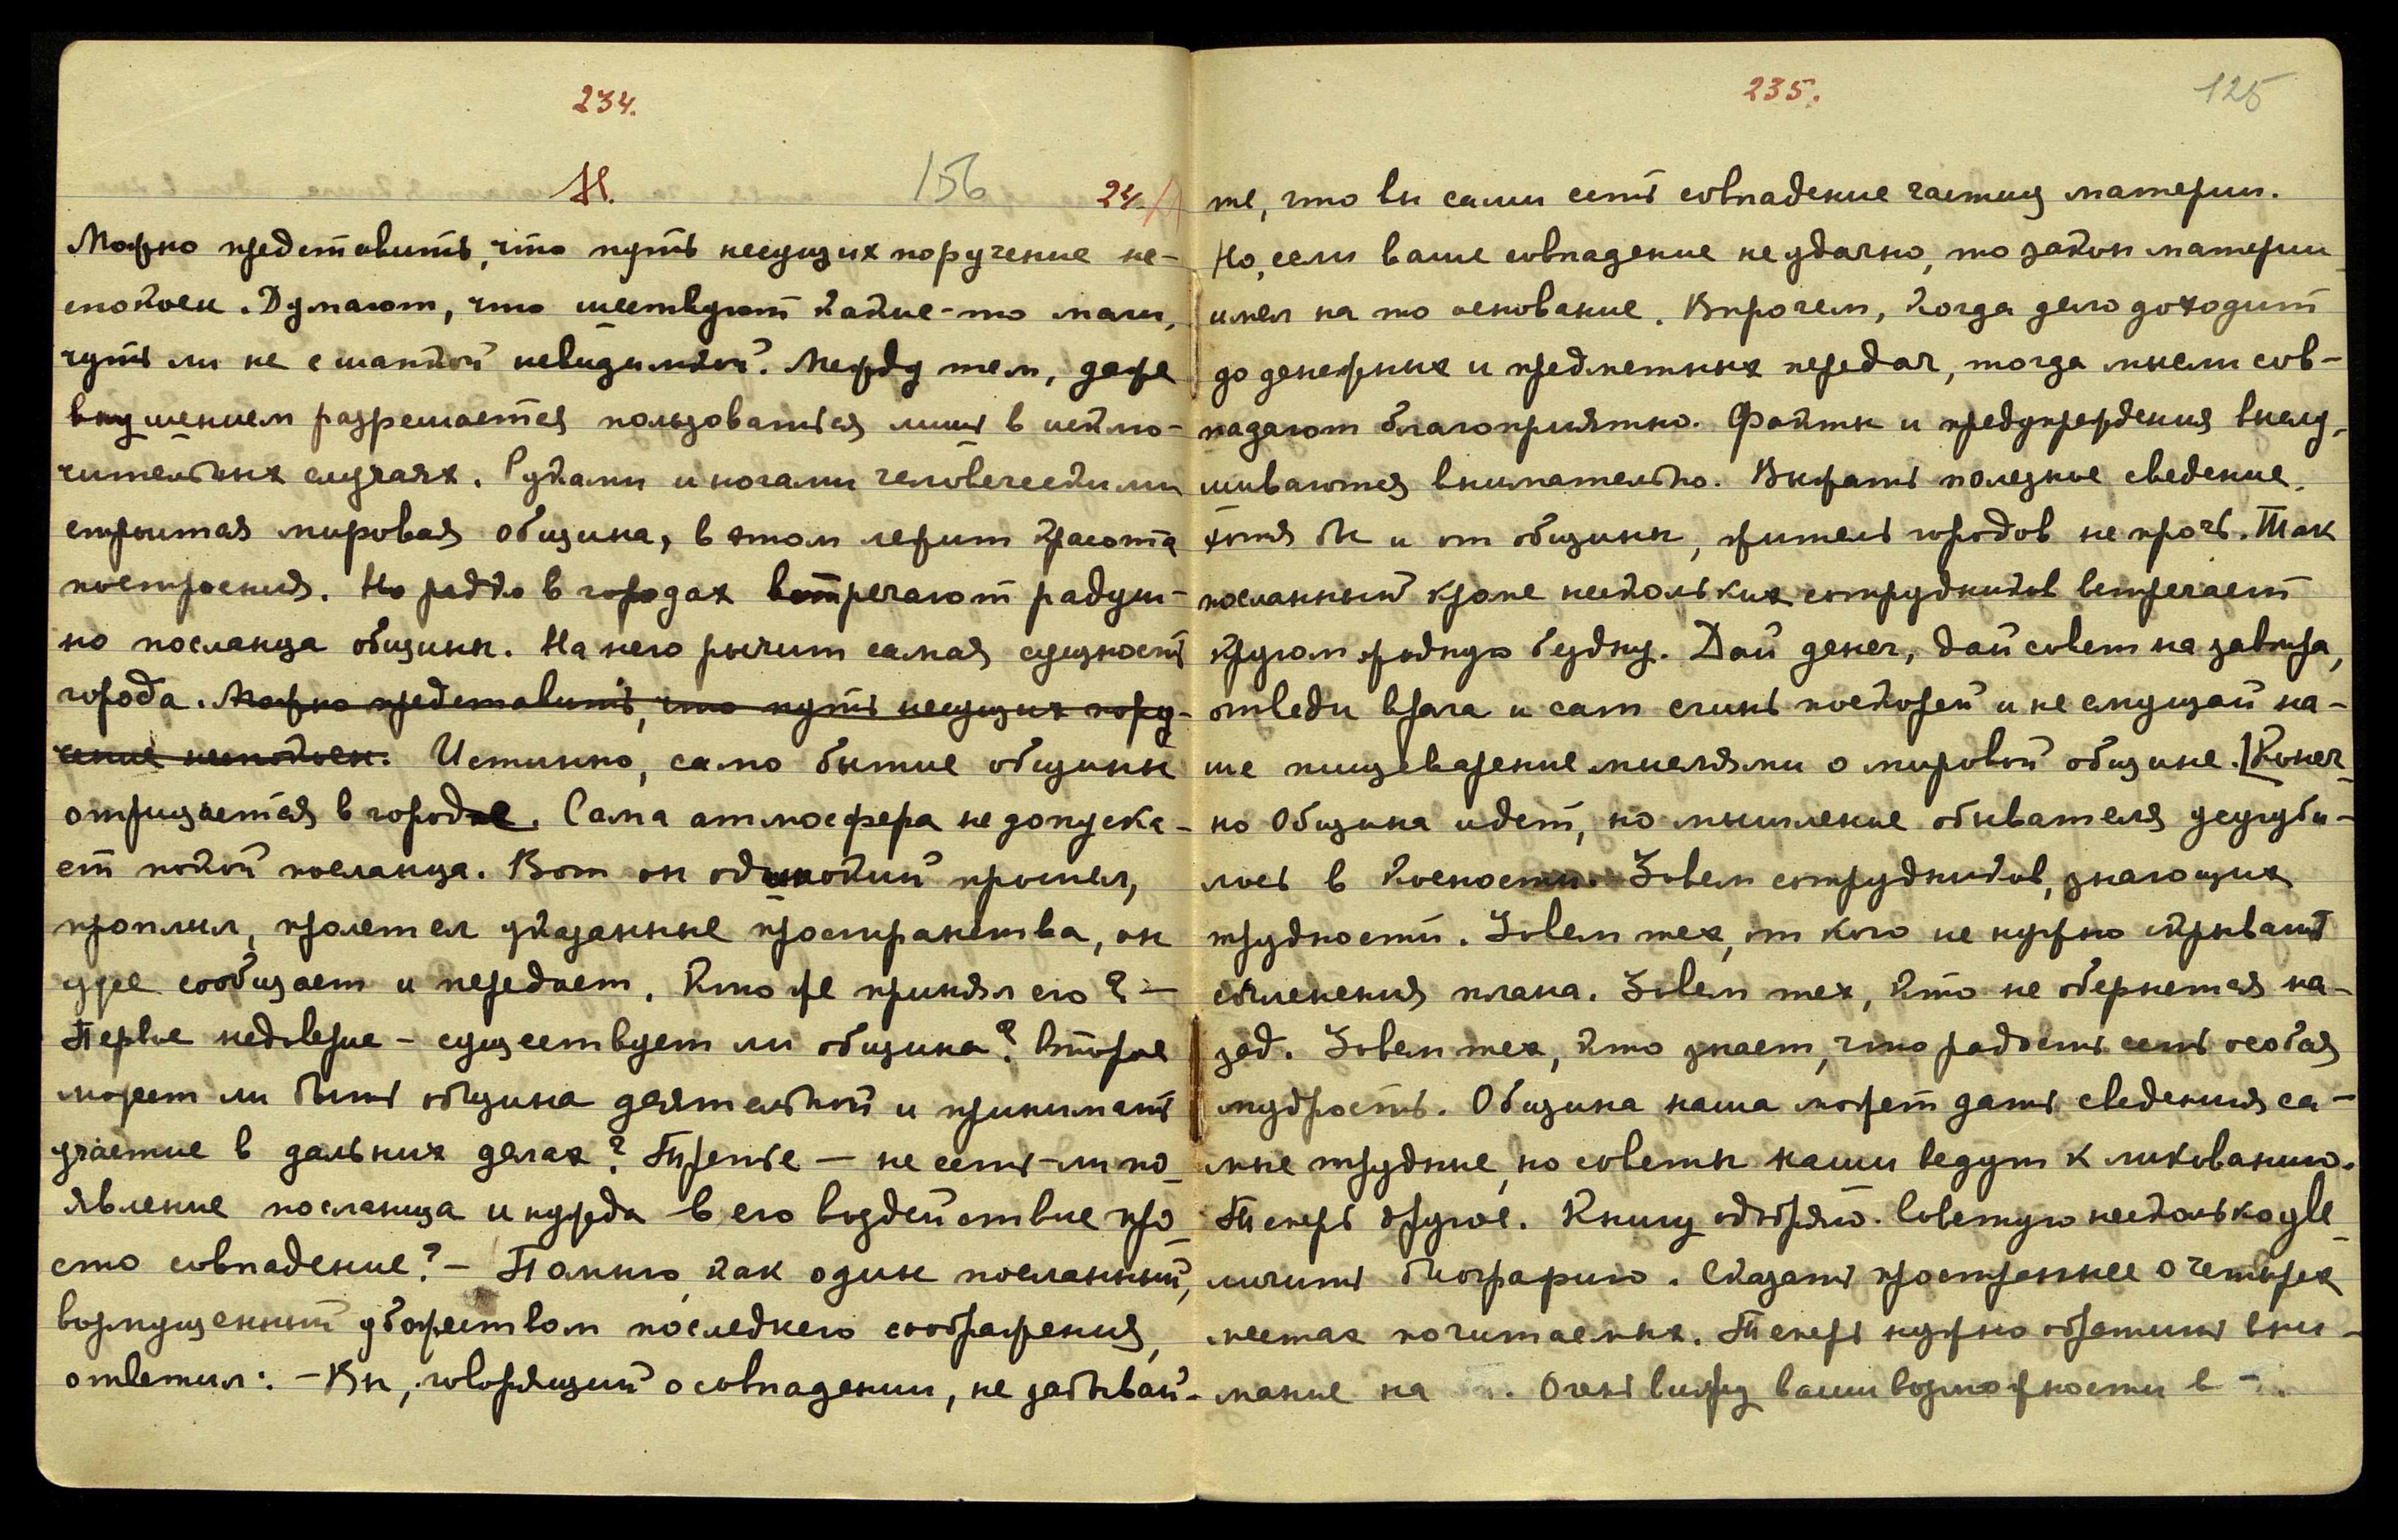 234.
Н. 156 24/
Можно представить, что путь несущих поручение не-
спокоен. Думают, что шествуют какие-то маги,
чуть ли не с шапкой невидимкой. Между тем, даже
внушением разрешается пользоваться лишь в исклю-
чительных случаях. Руками и ногами человеческими
строится мировая община, в этом лежит красота
построения. Но редко в городах встречают радуш-
но посланца общины. На него рычит самая сущность
города. Можно представить, что путь несущих пору-
чение неспокоен. Истинно, само бытие общины
отрицается в городе. Сама атмосфера не допуска-
ет покой посланца. Вот он одинокий прошел,
проплыл, пролетел указанные пространства, он
уже сообщает и передает. Кто же принял его? –
Первое недоверие – существует ли община? Второе
может ли быть община деятельной и принимать
участие в дальних делах? Третье – не есть-ли по-
явление посланца и нужда в его воздействие про-
сто совпадение? – Помню, как один посланный,
возмущенный убожеством последнего соображения,
ответил: – Вы, говорящий о совпадении, не забывай-
235. 125
те, что вы сами есть совпадение частиц материи.
Но, если ваше совпадение неудачно, то закон материи
имел на то основание. Впрочем, когда дело доходит
до денежных и предметных передач, тогда мысли сов-
падают благоприятно. Факты и предупреждения выслу-
шиваются внимательно. Вырвать полезное сведение,
хотя бы и от общины, житель городов не прочь. Так
посланный кроме нескольких сотрудников встречает
кругом жадную бездну. Дай денег, дай совет на завтра,
отведи врага и сам сгинь поскорей и не смущай на-
ше пищеварение мыслями о мировой общине. [Конеч-
но Община идет, но мышление обывателя усугуби-
лось в косности. Зовем сотрудников, знающих
трудности. Зовем тех, от кого не нужно скрывать
сочленения плана. Зовем тех, кто не обернется на-
зад. Зовем тех, кто знает, что радость есть особая
мудрость. Община наша может дать сведения са-
мые трудные, но советы наши ведут к ликованию.
Теперь другое. Книгу одобряю. Советую несколько уве-
личить биографию. Сказать пространнее о четырех
местах почитаемых. Теперь нужно обратить вни-
мание на . Очень вижу ваши возможности в – .